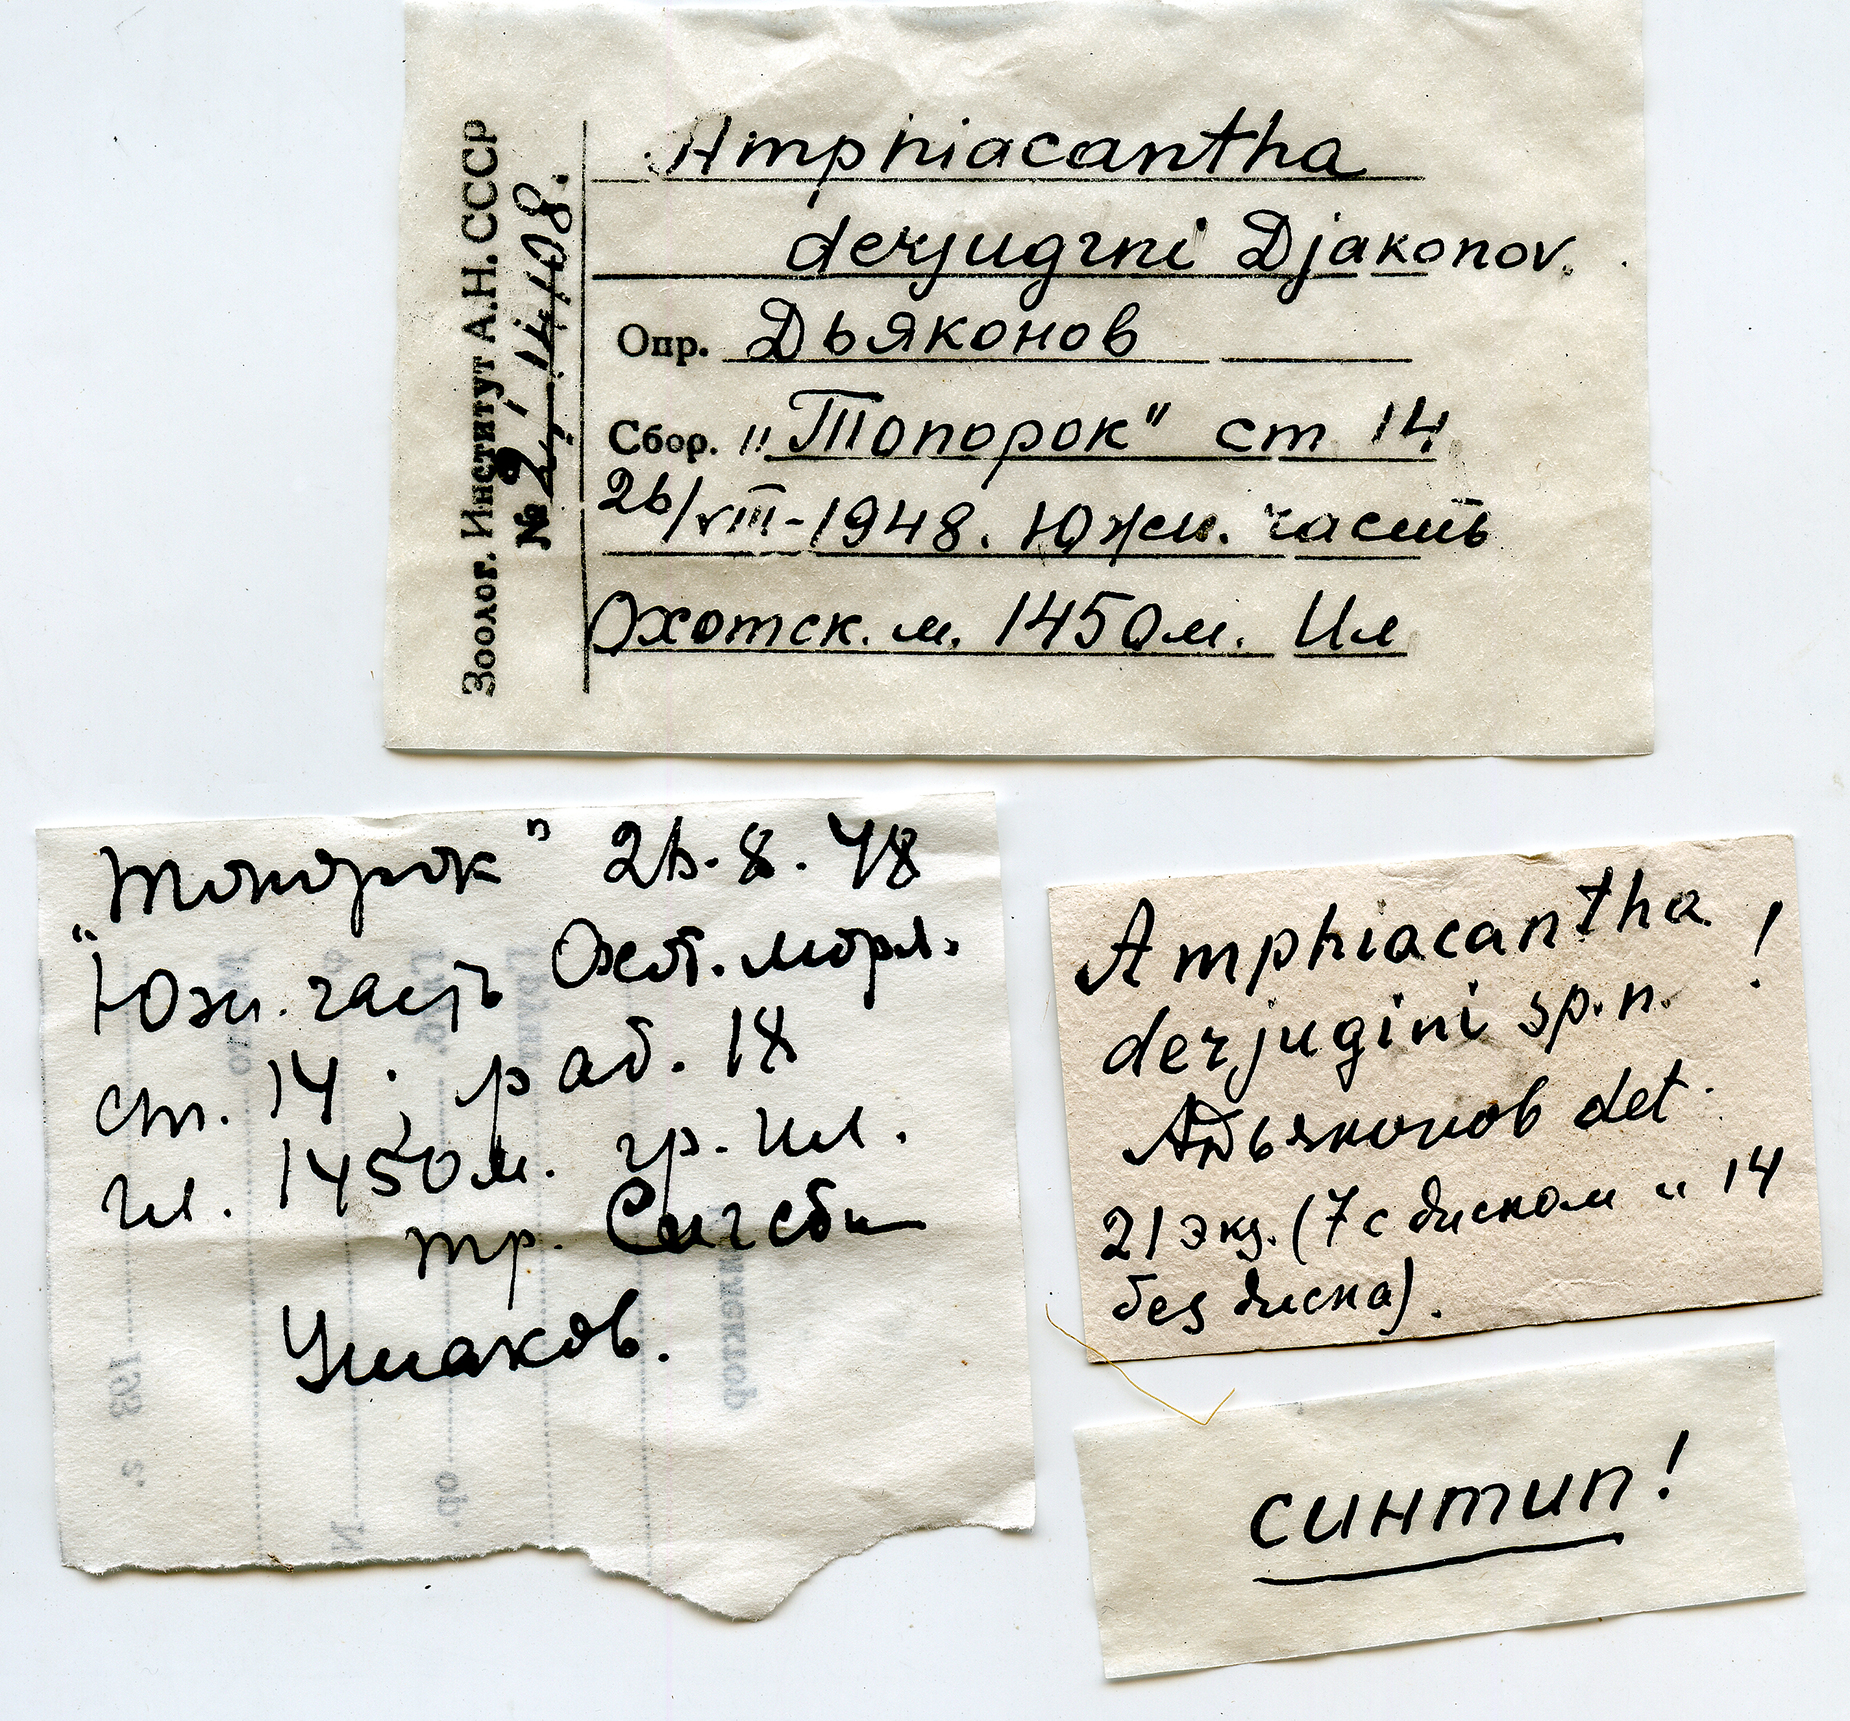 Зоолог. Институт А.Н. СССР
№ 2/11408.
Amphiacantha
derjugini Djakonov.
Опр. Дьяконов
Сбор. "Топорок" ст 14
26/VIII-1948. Южн. часть
Охотск. м. 1450м. Ил
"Топорок" 26.8.48
Южн. часть Охот. моря.
ст. 14; раб. 18
гл. 1450м. гр. ил.
тр. Сигсби
Ушаков.
Amphiacantha !
derjugini sp. n.
АДьяконов det.
21 экз. (7 с диском и 14
без диска).
синтип!